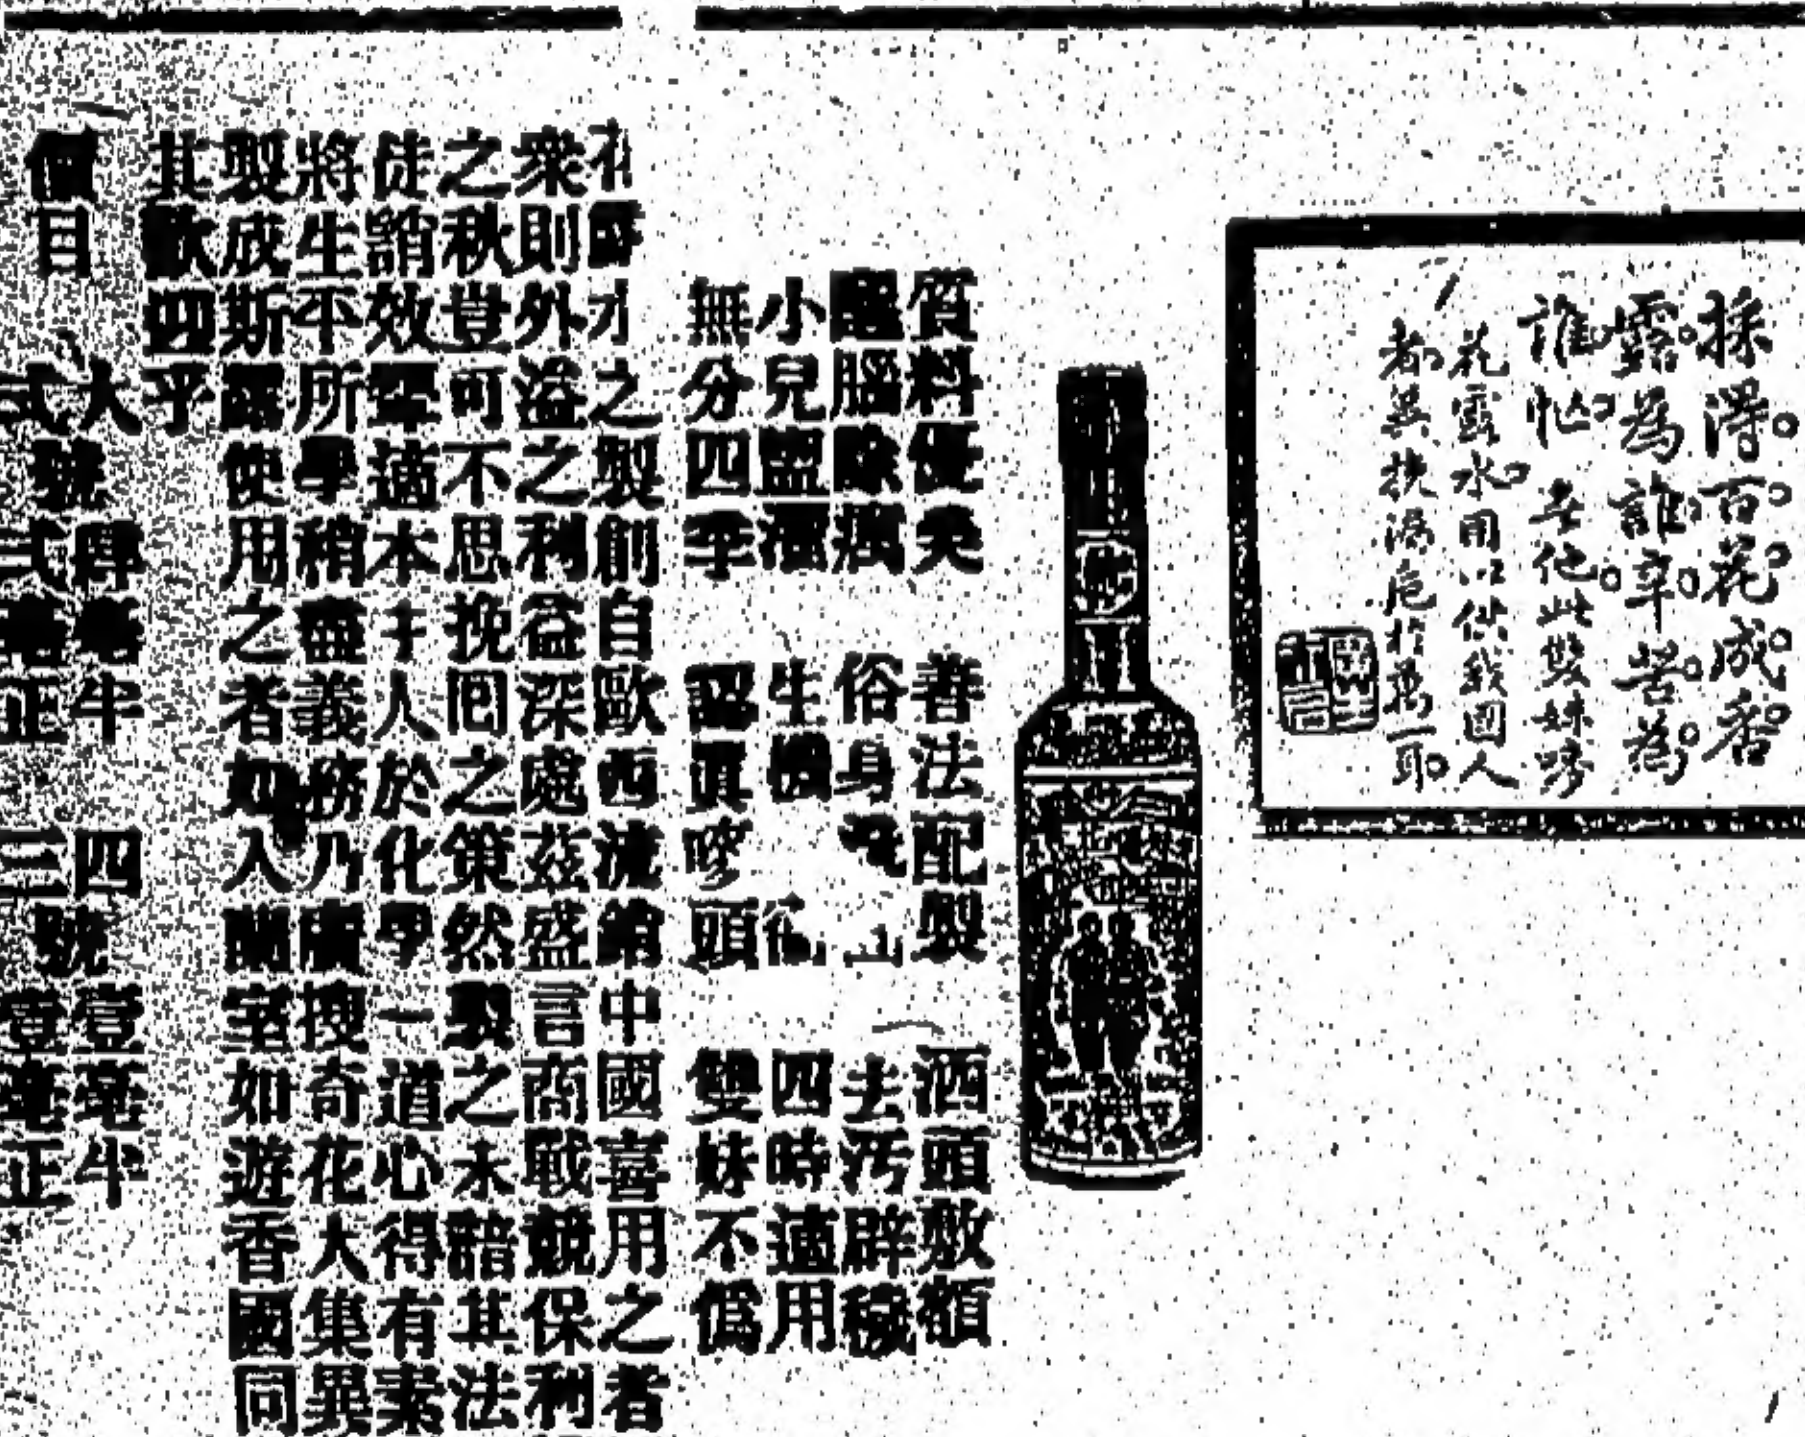 採得百花成香
露為誰辛苦為
誰忙 無他此雙妹嘜
花露水用以供我國人
者異挽漏巵於萬一耳
質料優美 善法配製 洒頭敷額
醒腦除瘋 俗身 去污辟穢
小兒盥濯 生機 四時適用
無分四季 認真嘜頭 雙妹不偽
花露水之製創自歐西流舘中國喜用之者
衆則外溢之利益深處茲盛言商戰競保利
之秋豈可不思挽囘之策然製之未諳其法
徒誚效顰適本主人於化學一道心得有素
將生平所學稍盡義務乃廣搜奇花大集異
製成斯露使用之者如入蘭室如遊香國同
其歡四乎
價目
大號每毫半 四號壹毫半
弍號弍毫正 三號壹毫正